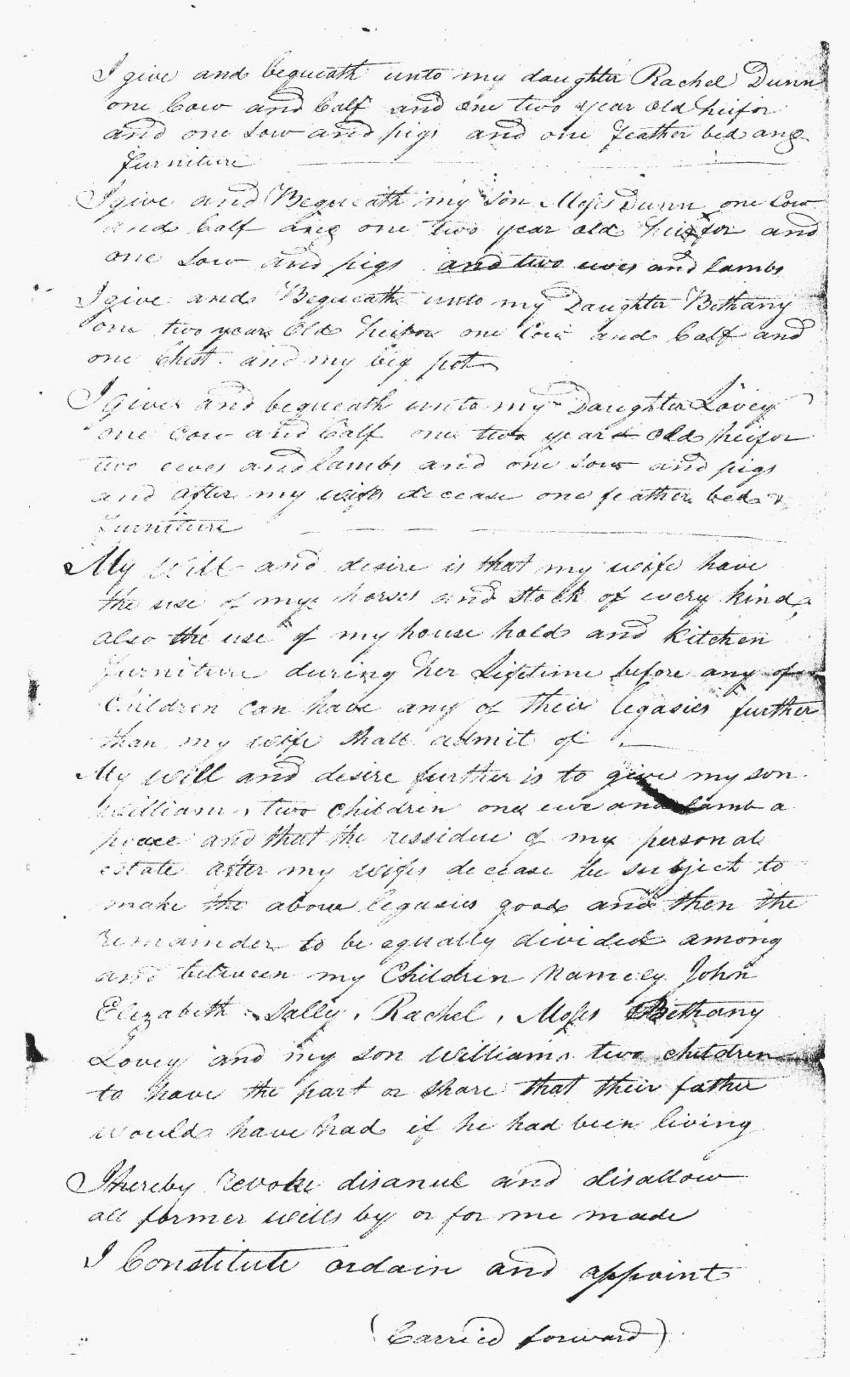 I give and bequeath unto my daughter Rachel Dunn
one Cow and Calf and one two year old heifor
and one Sow and pigs and one feather bed and
furniture
I give and Bequeath my son Moses Dunn one Cow
and Calf and one two year old heifor and
one Sow and pigs and two ewes and lambs
I give and Bequeath unto my Daughter Bethany
one two years Old heifor one Cow and Calf and
one Chest and my big pot
I give and bequeath unto my Daughter Lovey
one cow and Calf one two year old heifor
two ewes and lambs and one sow and pigs
and after my wifes decease one feather bed &
furniture
My Will and desire is that my wife have
the use of my horses and stock of every kind,
also the use of my house hold and kitchen
furniture during her Lifetime before any of
Children can have any of their legasies further
than my wife shall admit of
My will and desire further is to give my son
Williams two children one ewe and lamb a
peace and that the ressidue of my personal
estate after my wifes decease be subject to
make the above legasies good and then the
remainder to be equally divided among
and between my Children Namely John
Elizabeth Sally, Rachel, Moses Bethany
Lovey and my son Williams two children
to have the part or share that their father
would have had if he had been living
I hereby revoke disanul and disallow
all former wills by or for me made
I Constitute ordain and appoint
(Carried forward)